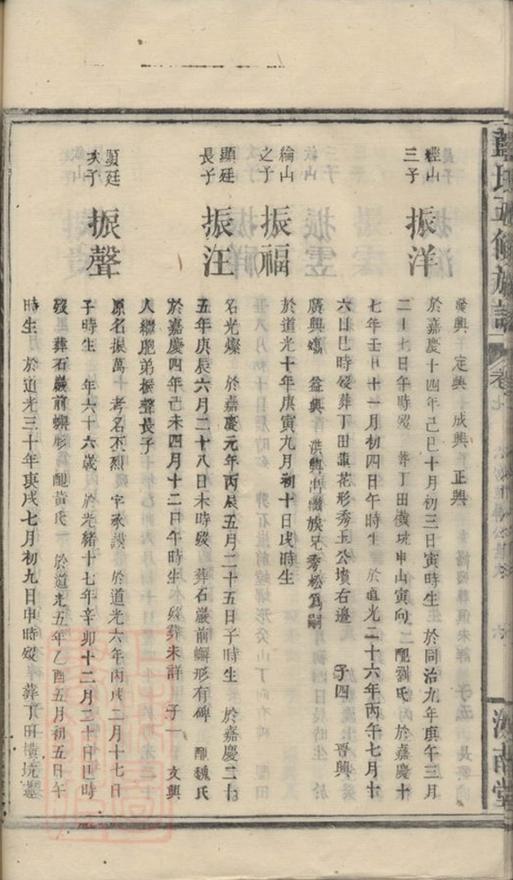 氏五修族譜 卷七
濟南堂
廣興 定興 成興 正興
經山三子 振洋
於嘉慶十四年己巳十月初三日寅時生 於同治九年庚午三月
二十七日午時歿 葬丁田橫坑申山寅向 二配劉氏 於嘉慶十
七年壬申十一月初四日午時生 於道光二十六年丙午七月十
六日巳時歿葬丁田龜花形秀玉公墳右邊 子四 晋興
廣興 益興 洪興出繼族兄秀松爲嗣
綸山之子 振福
於道光十年庚寅九月初十日戌時生
顯廷長子 振汪
名光燦 於嘉慶元年丙辰五月二十五日子時生 於嘉慶二十
五年庚辰六月二十八日未時歿 葬石巖前蠏形有碑 配魏氏
於嘉慶四年己未四月十二日午時生 歿葬未詳 子一 文興
人繼胞弟振聲長子
顯廷次子 振聲
原名振萬 考名丕烈 字承謨 於道光六年丙戌二月十七日
子時生 年六十六歲 於光緒十七年辛卯十二月二十日巳時
歿 葬石巖前蠏形 配黃氏 於道光五年乙酉五月初五日午
時生 於道光三十年庚戌七月初九日申時歿 葬丁田橫坑